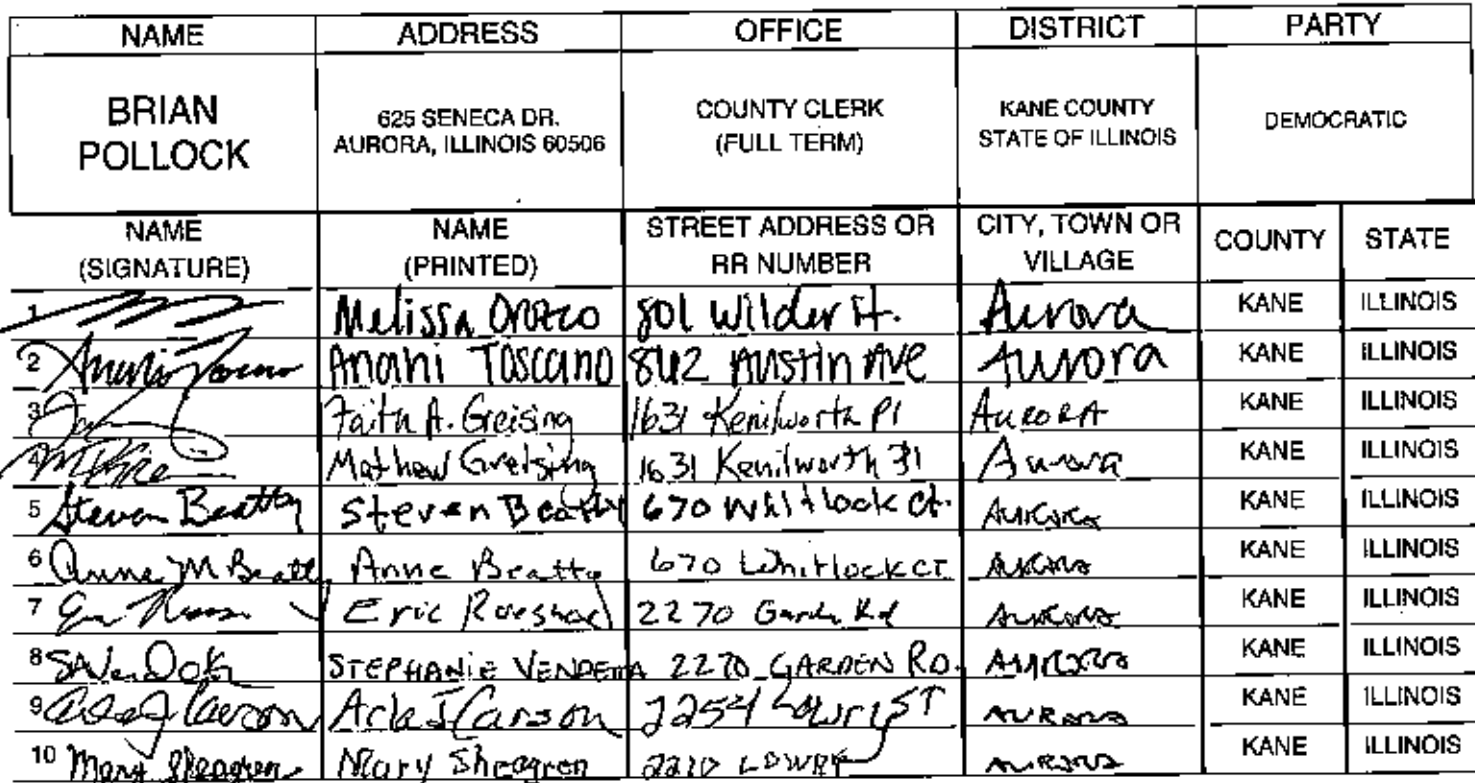 NAME ADDRESS OFFICE DISTRICT PARTY
BRIAN POLLOCK 625 SENECA DR. AURORA, ILLINOIS 60506 COUNTY CLERK (FULL TERM) KANE COUNTY STATE OF ILLINOIS DEMOCRATIC
NAME (SIGNATURE) NAME (PRINTED) STREET ADDRESS OR RR NUMBER CITY, TOWN OR VILLAGE COUNTY STATE
1 Melissa Orozco 801 Wilder St. Aurora KANE ILLINOIS
2 Anahi Toscano 842 Austin Ave Aurora KANE ILLINOIS
3 Faith A. Greising 1631 Kenilworth Pl AURORA KANE ILLINOIS
4 Mathew Greising 1631 Kenilworth Pl Aurora KANE ILLINOIS
5 Steven Beatty Steven Beatty 670 Whitlock Ct. Aurora KANE ILLINOIS
6 Anne M Beatty Anne Beatty 670 Whitlock CT Aurora KANE ILLINOIS
7 Eric 2270 Aurora KANE ILLINOIS
8 STEPHANIE 2270 GARDEN RD. Aurora KANE ILLINOIS
9 Carson Arla J Carson 2254 AURORA KANE ILLINOIS
10 Mary Sheagren Mary Sheagren 2210 AURORA KANE ILLINOIS